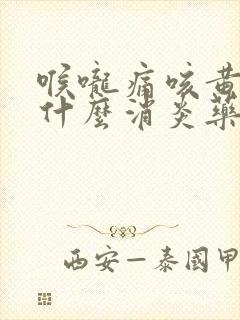 喉嚨痛咳黃
什麼消炎藥
西安—泰國甲